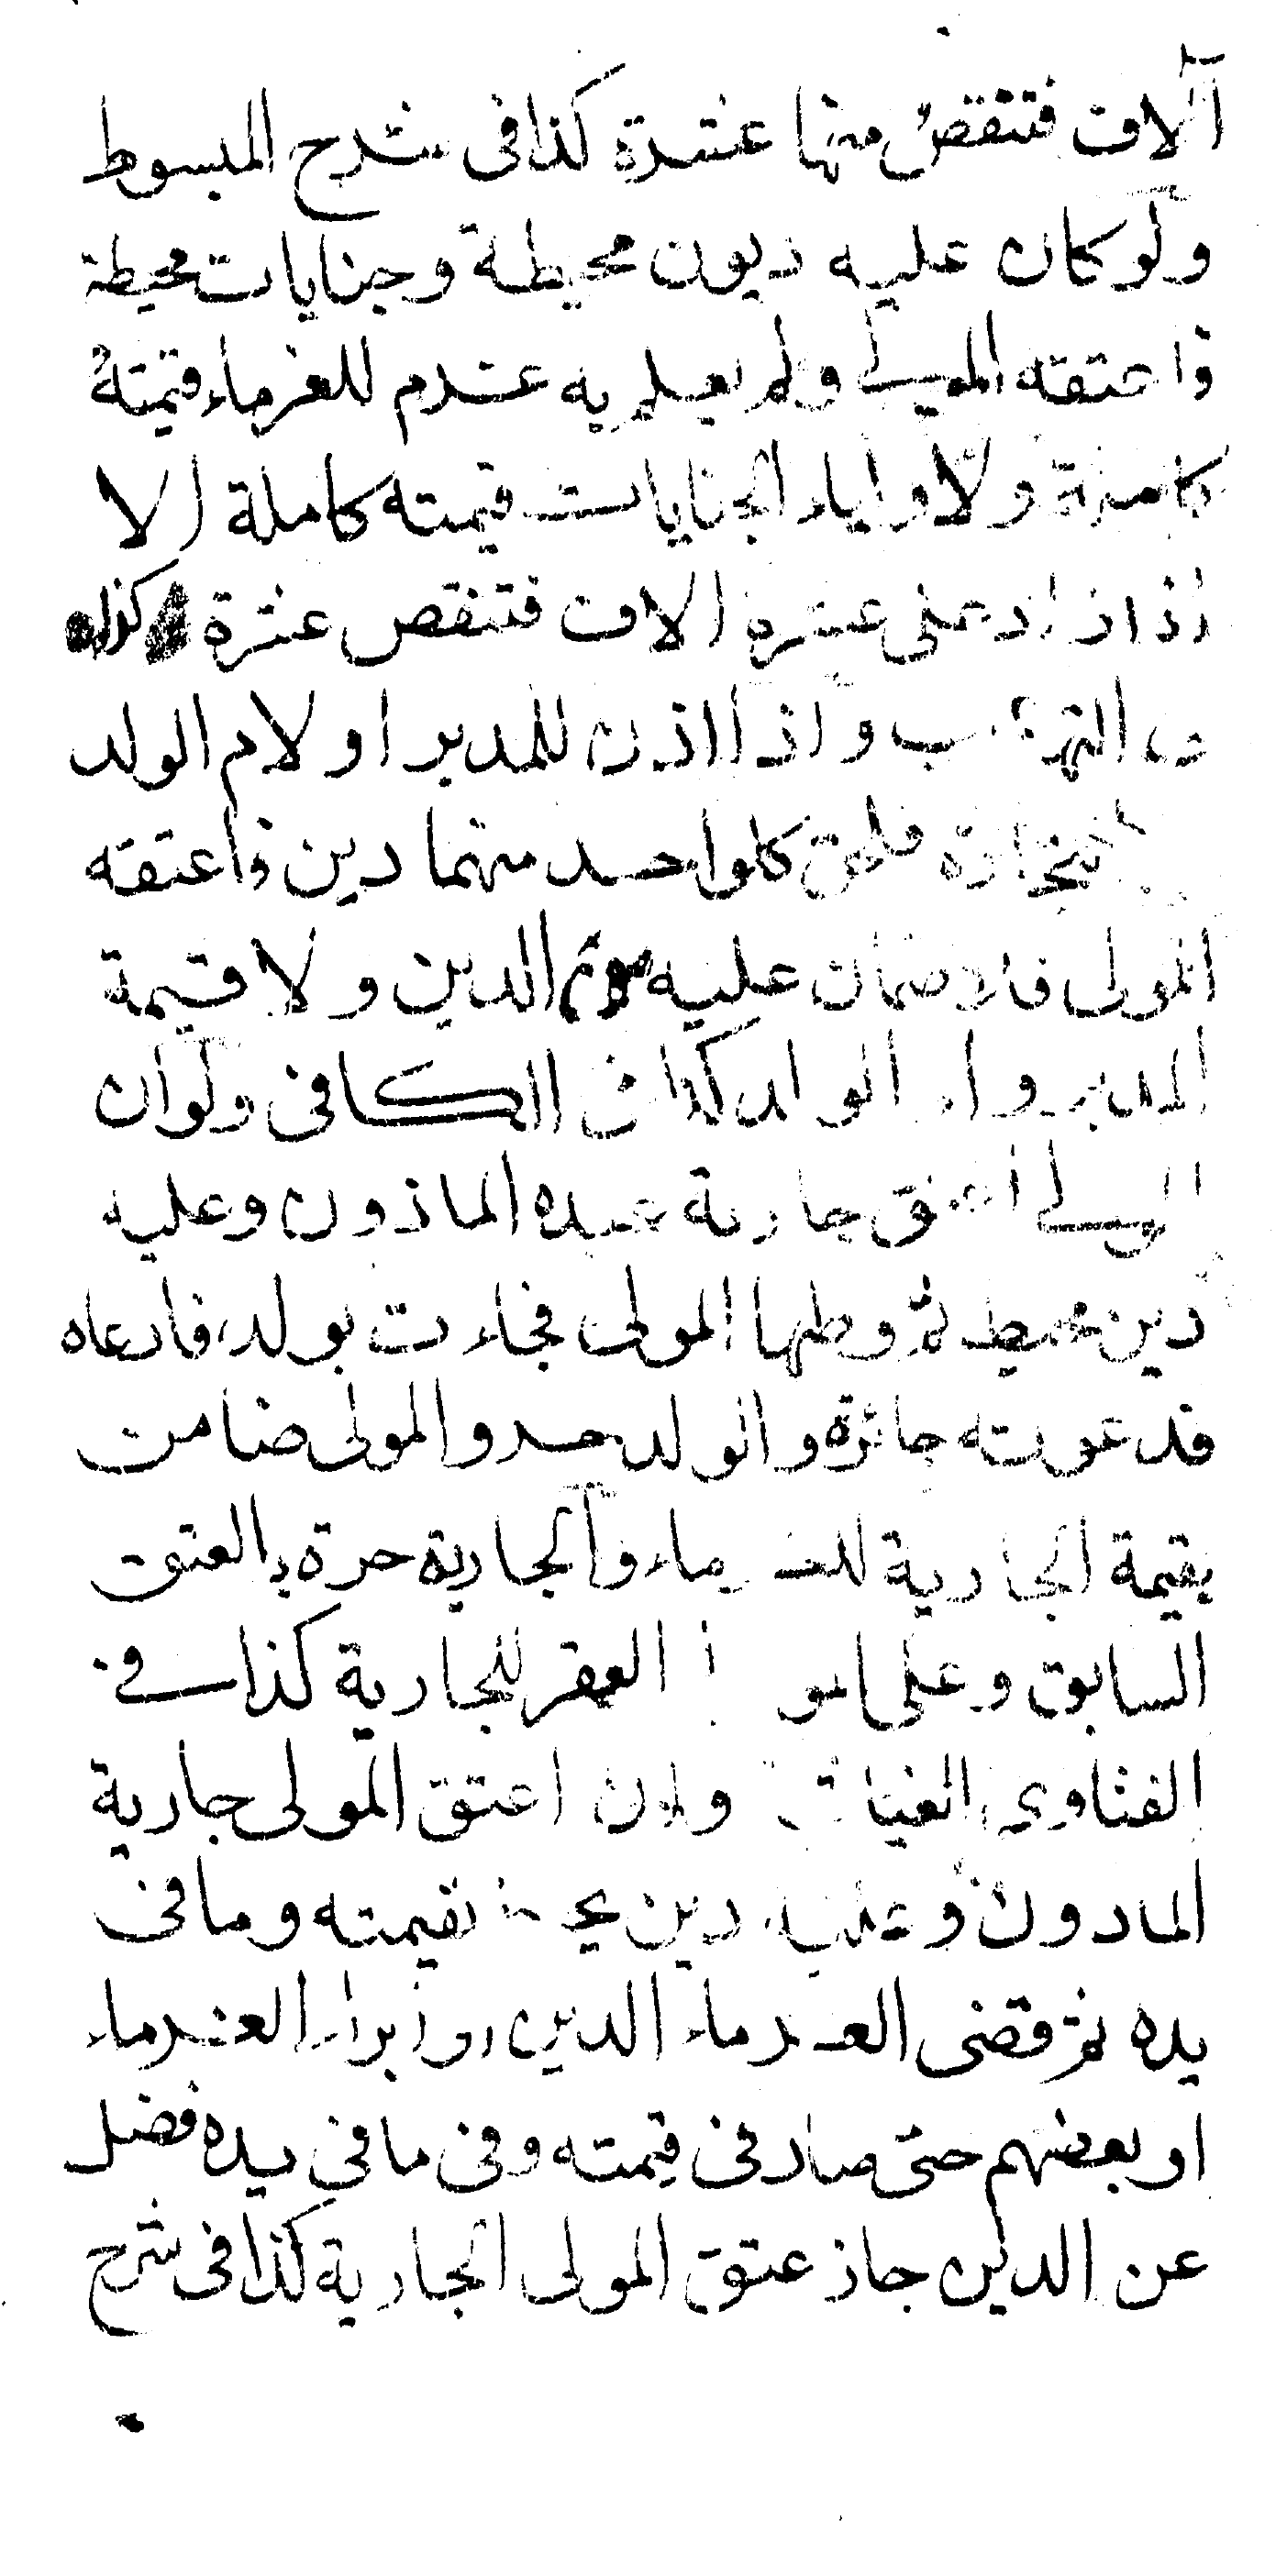 آلاف فتنقص منها عشرة كذا فى شرح المبسوط
ولو كان عليه ديون محيطة وجنايات محيطة
فاعتقه المولى ولم يعلم به غرم للغرماء قيمته
كاملة ولاولياء الجنايات قيمته كاملة الا
اذا زاد على عشرة الاف فتنقص عشرة كذا
واذا اذن للمدبر او لام الولد
التجارة فلحق كل واحد منهما دين فاعتقه
المولى فلا ضمان عليه الدين ولا قيمة
المدبر وام الولد كذا فى الكافى ولو ان
المولى اعتق جارية عبده الماذون وعليه
دين محيط ثم وطئها المولى فجاءت بولد فادعاه
فدعوته جائزة والولد حر والمولى ضامن
بقيمة الجارية للغرماء والجارية حرة بالعتق
السابق وعلى المولى العقر للجارية كذا فى
الفتاوى الغياثية وان اعتق المولى جارية
المادون وعليه دين يحيط بقيمته وما فى
يده ثم قضى الغرماء الدين او ابراه الغرماء
او بعضهم حتى صار فى قيمته وفى ما فى يده فضل
عن الدين جاز عتق المولى الجارية كذا فى شرح